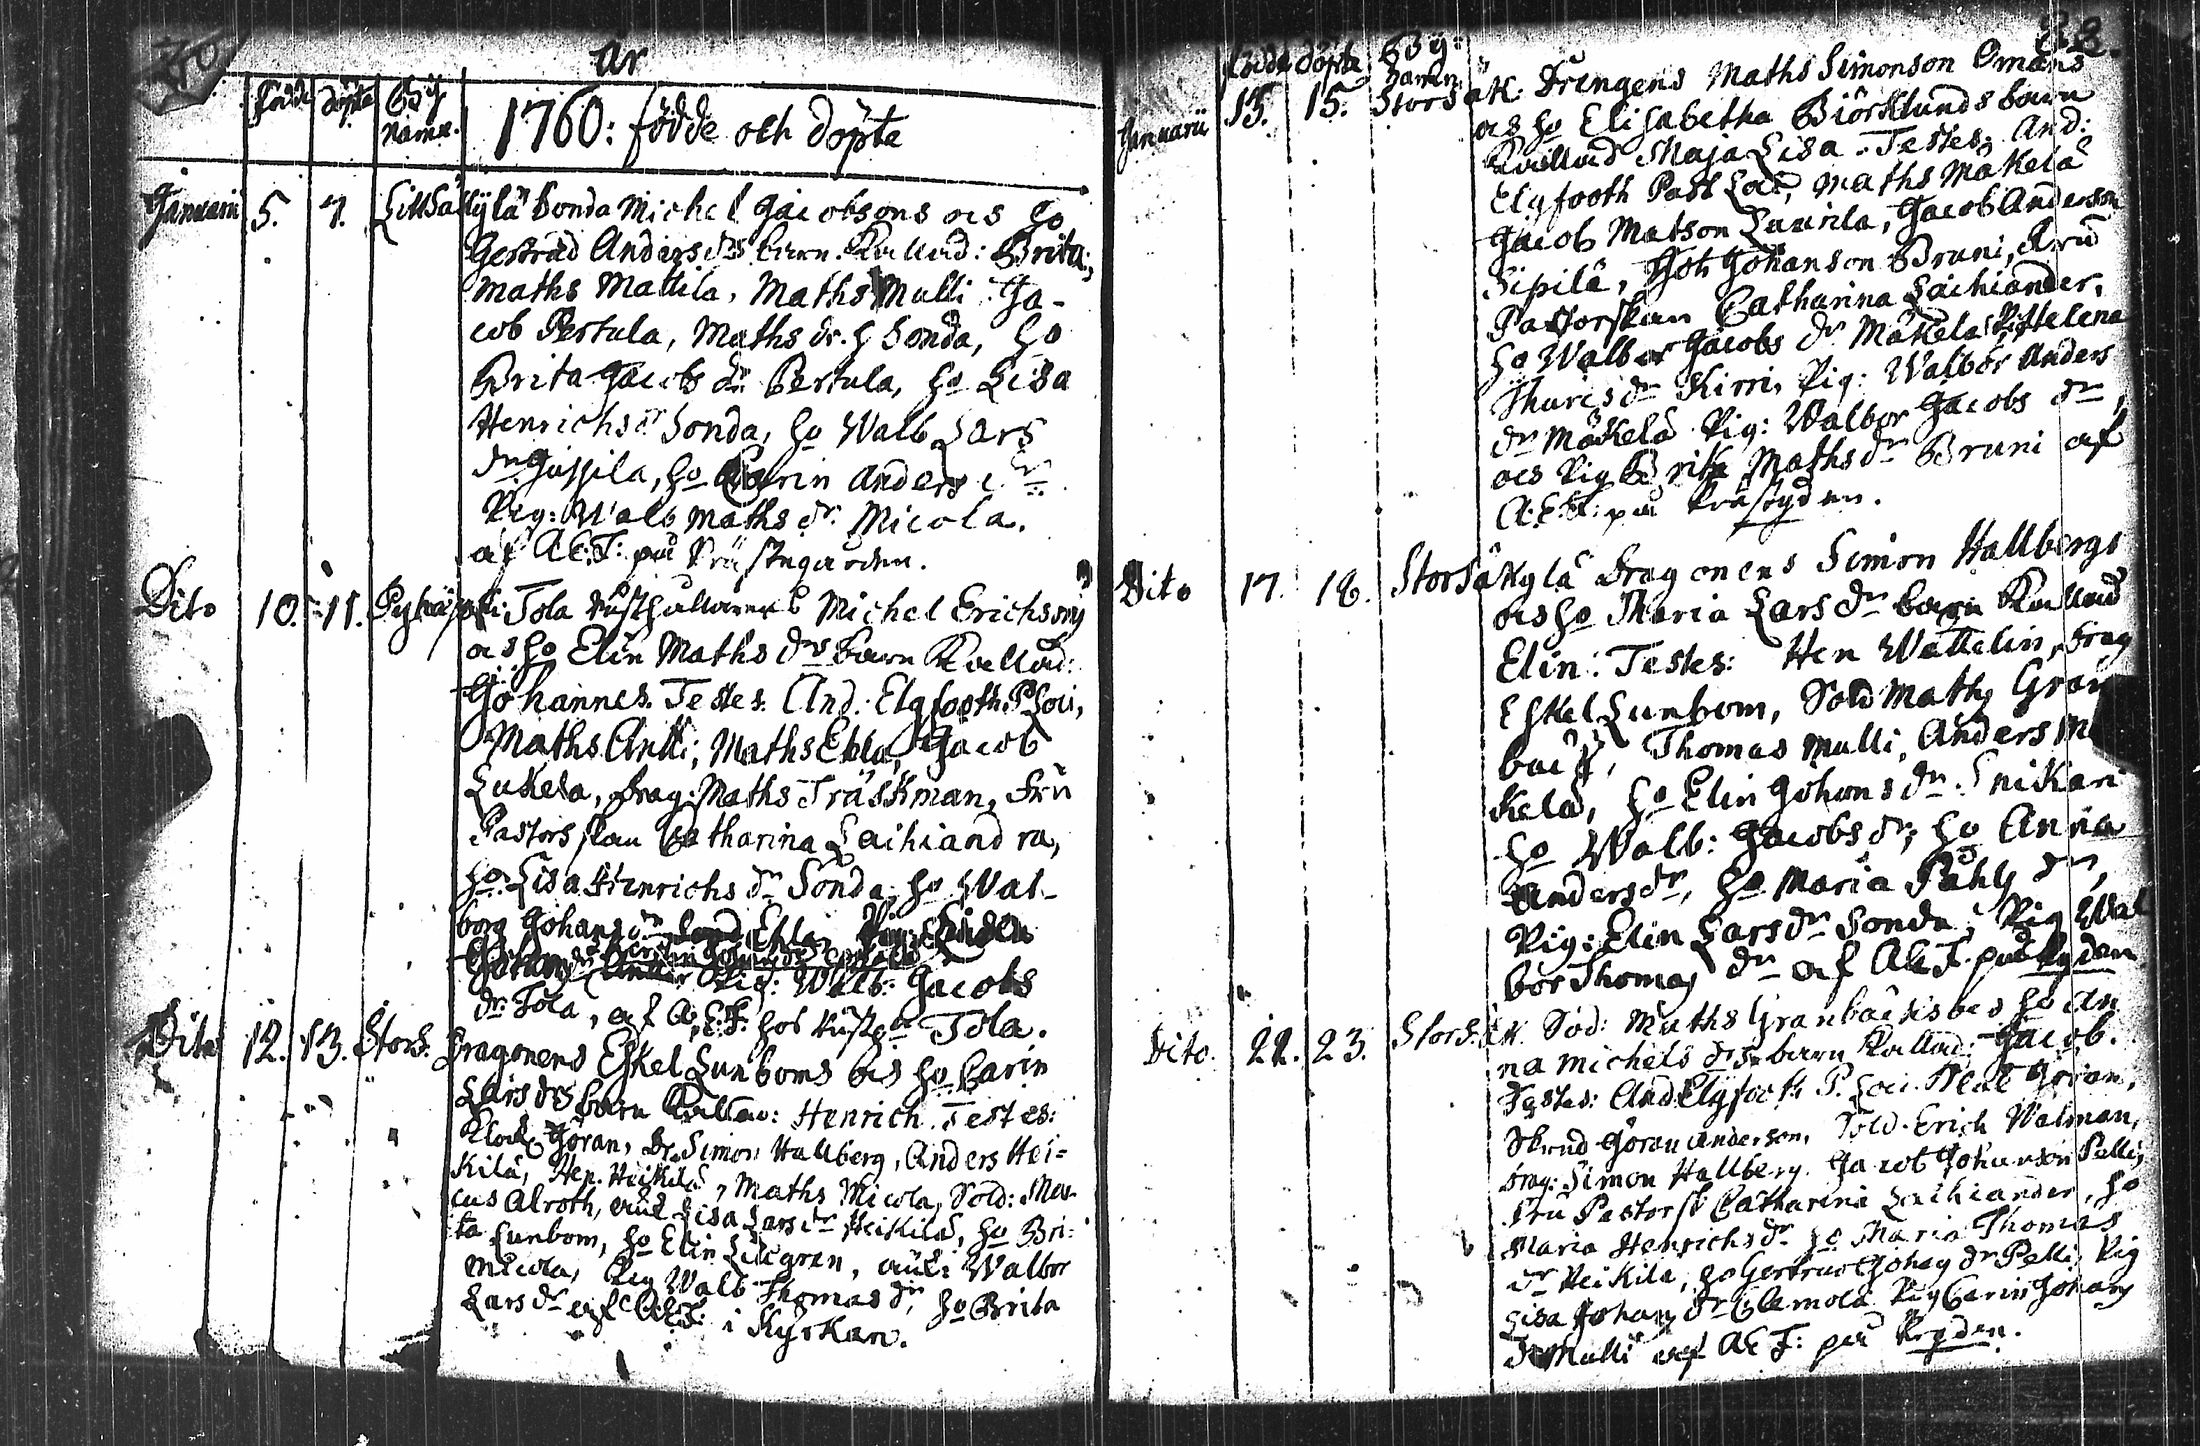 År
födde döpte By
namn. 1760: födde och döpte
Januarii 5. 7. LillSäkylä bonda Michel Jacobsons och ho
Gertrud Anders drs barn Kallad: Brita;
Maths Mattila, Maths Mulli Ja-
cob Pertula, Maths dr. h Sonda, ho
Brita Jacobs dr Pertula, ho Lisa
Henrichs dr Sonda, ho Walb Lars
dr Jussila, ho Carin Anders dr
Pig: Walb Maths dr. Micola.
af A.E.F: på Prästegården.
Dito 10. 11. Tola Rusthållarens Michel Erichsons
och ho Elin Maths drs barn Kallad:
Johannes. Testes: And: Elgfooth P Loci,
Maths Antti; Maths Ebla, Jacob
Lukela, Drag: Maths Träskman, Fru
Pastorskan Catharina Laihiandra,
ho: Lisa Henrichs dr Sonda, ho Wal-
borg Johans dr Ebla,
Pig: Walb: Jacobs
dr: Tola, af A.E.F. hos Rustgn Tola.
Dito 12. 13. StorS. Dragonens Eskel Lunboms och ho Carin
Lars drs barn Kallad: Henrich. Testes:
Klock Göran, Dr. Simon Hallberg, Anders Hei-
kilä, Hen. Heikilä, Maths Micola, Sold: Mar-
cus Alroth, Lisa Lars dr Heikilä, ho Bri-
ta Lunbom, ho Elin Lillgren, Walbor
Micola, Pig Walb Thomas dr, ho Brita
Lars dr af A.E.F: i Kyrkan.
38.
födde döpte By
namn
Januarii 13. 15. StorSäk: Drengens Maths Simonson Omans
och ho Elisabetha Biörklunds barn
Kallad Maja Lisa. Testes; And:
Elgfooth Past Loci, Maths Mäkelä
Jacob Matson Laurila, Jacob Anderson
Sipilä, Joh Johanson Bruni, Fru
Pastorskan Catharina Laihiander,
ho Walbor Jacobs dr Mäkelä, Pig Helena
Thuris dr Kirri, Pig: Walbor Anders
dr Mäkelä Pig: Walbor Jacobs dr,
och Pig Brita Maths dr Bruni af
A.E.F: på
Dito 17. 18. StorSäkylä Dragonens Simon Hallbergs
och ho Maria Lars dr barn Kallad
Elin: Testes: Hen Wettelin, Drag
Eskel Lunbom, Sold Maths Gran
back, Thomas Mulli, Anders Mä
kelä, ho Elin Johans dr Snikari
ho Walb: Jacobs dr, ho Anna
Anders dr, ho Maria Påhls dr,
Pig: Elin Lars dr Sonda, Pig Wal
bor Thomas dr af A.E.F. på
Dito 22. 23. StorSäk. Sod: Maths Granbacks och ho An
na Michels drs barn Kallad: Jacob.
Testes: And Elgfooth P. Loci. Klock Göran,
Göran Anderson, Sold. Erich Walman,
Drag: Simon Hallberg. Jacob Johanson Pelli,
Fru Pastorsk Catharina Laihiander, ho
Maria Henrichs dr ho Maria Thomas
dr Heikilä, ho Gertrud Johans dr Pelli, Pig
Lisa Johans dr Clemola Pig Carin Johans
dr Mulli af A.E.F: på